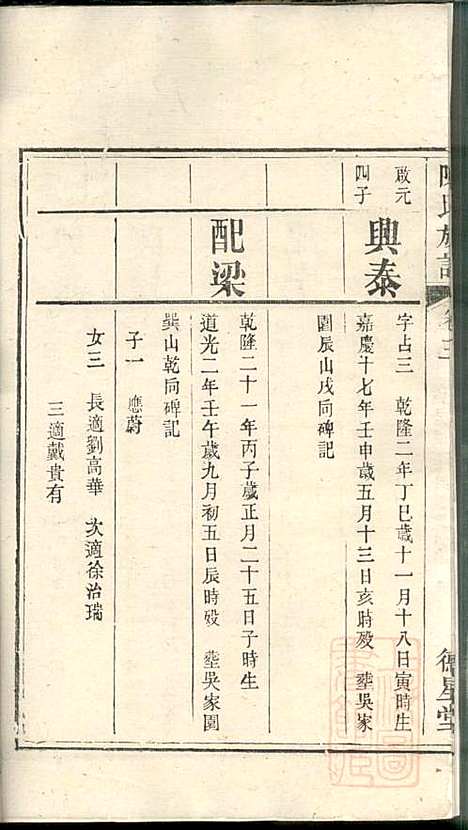 陳氏族譜
卷三
德星堂
啟元
四子
興泰
字占三 乾隆二年丁巳歲十一月十八日寅時生
嘉慶十七年壬申歲五月十三日亥時殁 塟吳家
園辰山戌向碑記
配梁
乾隆二十一年丙子歲正月二十五日子時生
道光二年壬午歲九月初五日辰時殁 塟吳家園
巽山乾向碑記
子一 應蔚
女三 長適劉高華 次適徐治瑞
三適戴貴有